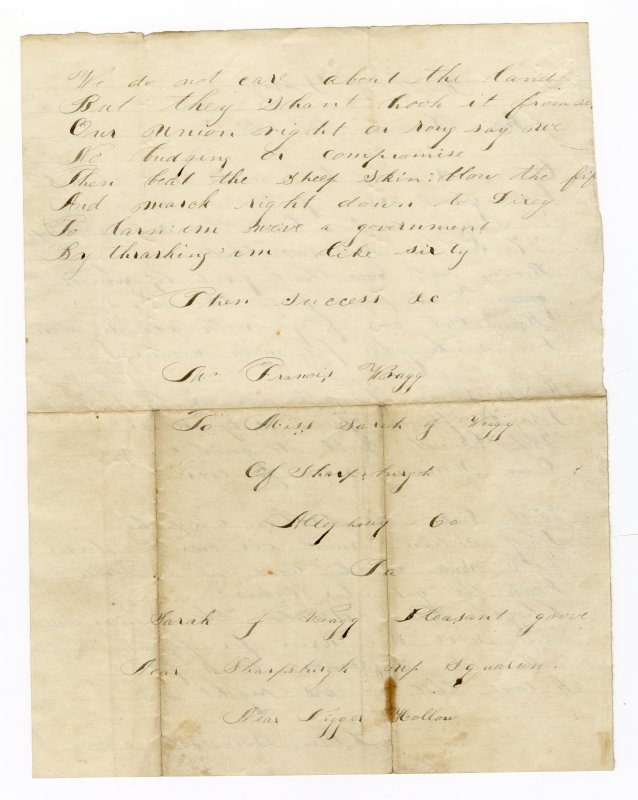 We do not care about the land
But they shant hook it from us
Our Union right or rong say we
No budging or compromise
Then beat the sheep skin: blow the fif
And march right down to Dixey
To larn em weive a government
By thrashing em like sixty
Then success &c
Mr Francis Wragg
To Miss Sarah J Wragg
Of Sharpsburgh
Allghany Co
Pa
Sarah J Wragg Pleasant grove
Near Sharpsburgh
Near Nigger Hollow